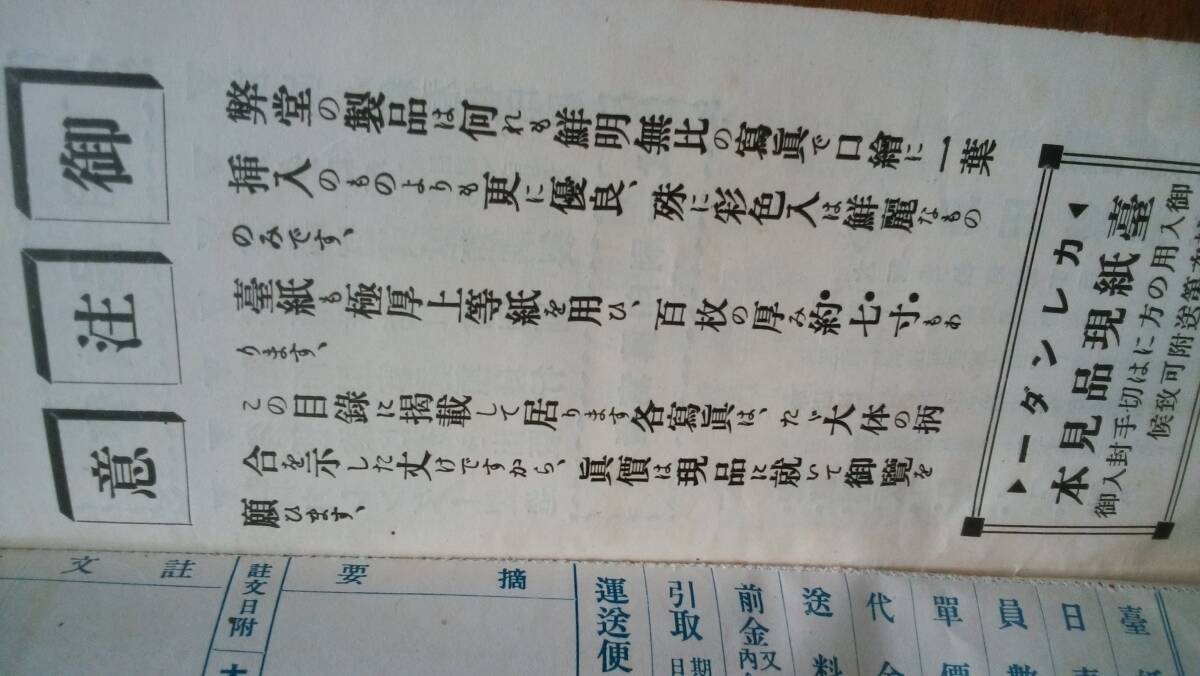 御注意
弊堂の製品は何れも鮮明無比の寫眞で口繪に一葉
挿入のものよりも更に優良、殊に彩色入は鮮麗なもの
のみです、
臺紙も極厚上等紙を用ひ、百枚の厚み約七寸もあ
ります、
この目錄に掲載して居ります各寫眞は、たゞ大体の柄
合を示した丈けですから、眞價は現品に就いて御覽を
願ひます、
▲カレンダー▼
臺紙現品見本
御入用の方には切手封入御
送附可致候
註文
註文日附
摘要
運送便
引取
日期
前金
内又
送料
代金
單價
員數
日
臺